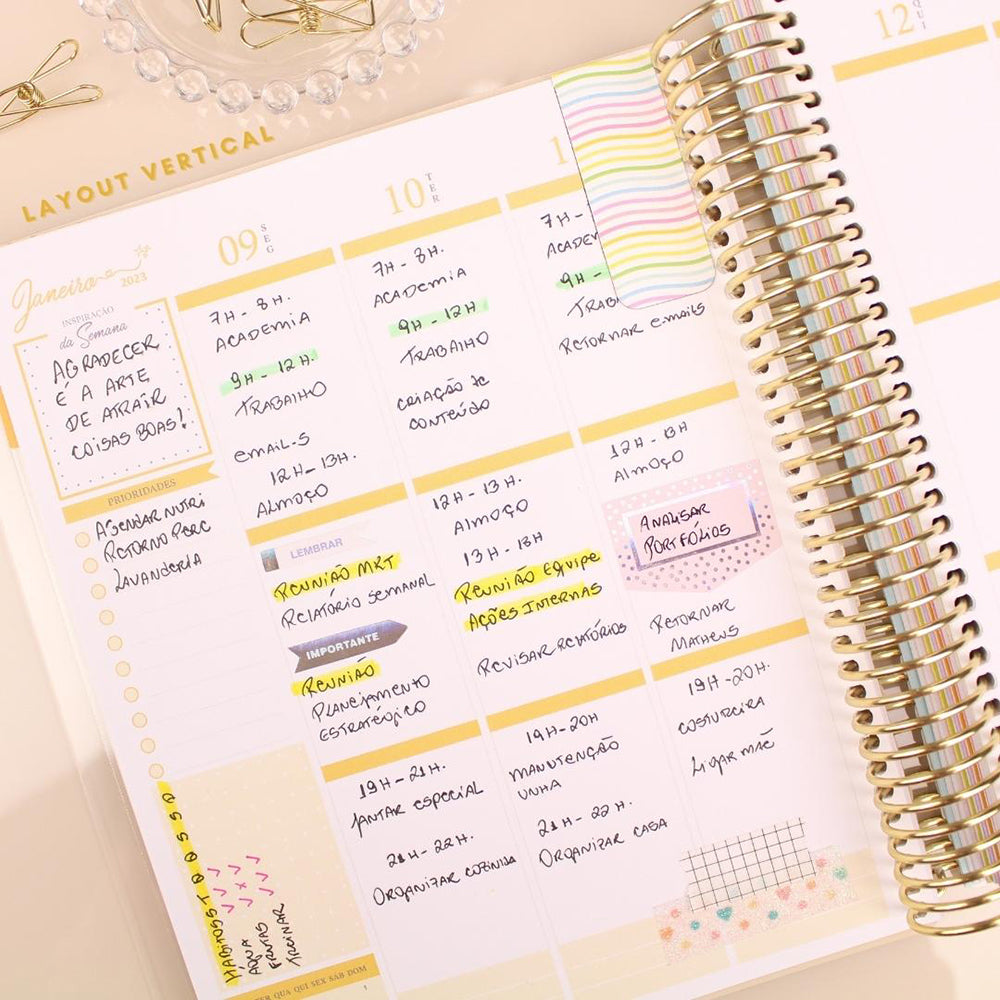 LAYOUT VERTICAL
Janeiro
2023
INSPIRAÇÃO
da Semana
AGRADECER
É A ARTE
DE ATRAIR
COISAS BOAS!
PRIORIDADES
AGENDAR NUTRI
RETORNO PERC
LAVANDERIA
HÁBITOS S T Q Q S S D
ÁGUA
FRUTAS
TREINAR
TER QUA QUI SEX SAB DOM
1
09
SEG
7H - 8H.
ACADEMIA
9H - 12H.
TRABALHO
EMAIL-S
12H - 13H.
ALMOÇO
LEMBRAR
REUNIÃO MKT
RELATÓRIO SEMANAL
IMPORTANTE
REUNIÃO
PLANEJAMENTO
ESTRATÉGICO
19H - 21H.
JANTAR ESPECIAL
21H - 22H.
ORGANIZAR COZINHA
10
TER
7H - 8H.
ACADEMIA
9H - 12H
TRABALHO
CRIAÇÃO DE
CONTEÚDO
12H - 13H.
ALMOÇO
13H - 18H
REUNIÃO EQUIPE
AÇÕES INTERNAS
REVISAR RELATÓRIOS
19H - 20H
MANUTENÇÃO
UNHA
21H - 22H.
ORGANIZAR CASA
1
7H -
ACADEM
9H -
TRAB
RETORNAR E-MAILS
12H - 13H
ALMOÇO
ANALISAR
PORTFÓLIOS
RETORNAR
MATHEUS
19H - 20H.
COSTUREIRA
LIGAR MÃE
12
QUI